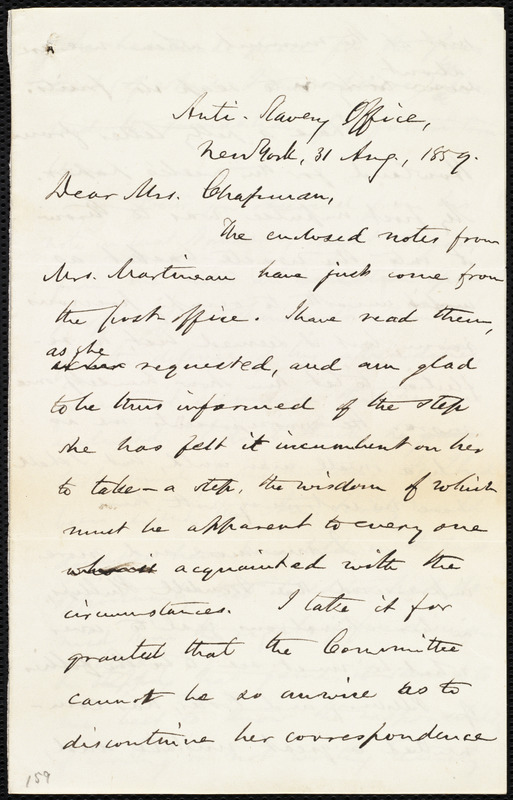 Anti-Slavery Office,
New York, 31 Aug., 1859.
Dear Mrs. Chapman,
The enclosed notes from
Mrs. Martineau have just come from
the post-office. I have read them,
as she
requested, and am glad
to be thus informed of the step
she has felt it incumbent on her
to take — a step, the wisdom of which
must be apparent to every one
who is acquainted with the
circumstances. I take it for
granted that the Committee
cannot be so unwise as to
discontinue her correspondence
159